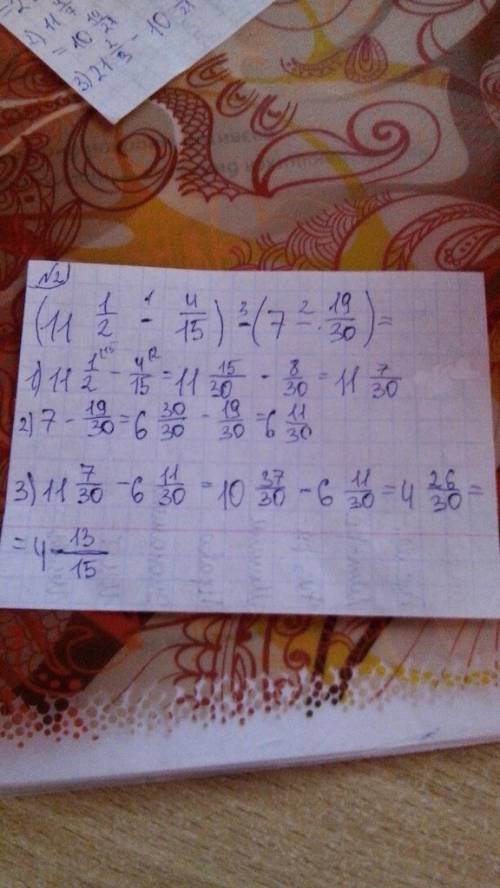 2) 11
= 10 10/27
3) 21 2/9 - 10
N2)
(11 1/2 - 4/15) - (7 - 19/30) =
1) 11 1/2 - 4/15 = 11 15/30 - 8/30 = 11 7/30
2) 7 - 19/30 = 6 30/30 - 19/30 = 6 11/30
3) 11 7/30 - 6 11/30 = 10 37/30 - 6 11/30 = 4 26/30 =
= 4 13/15